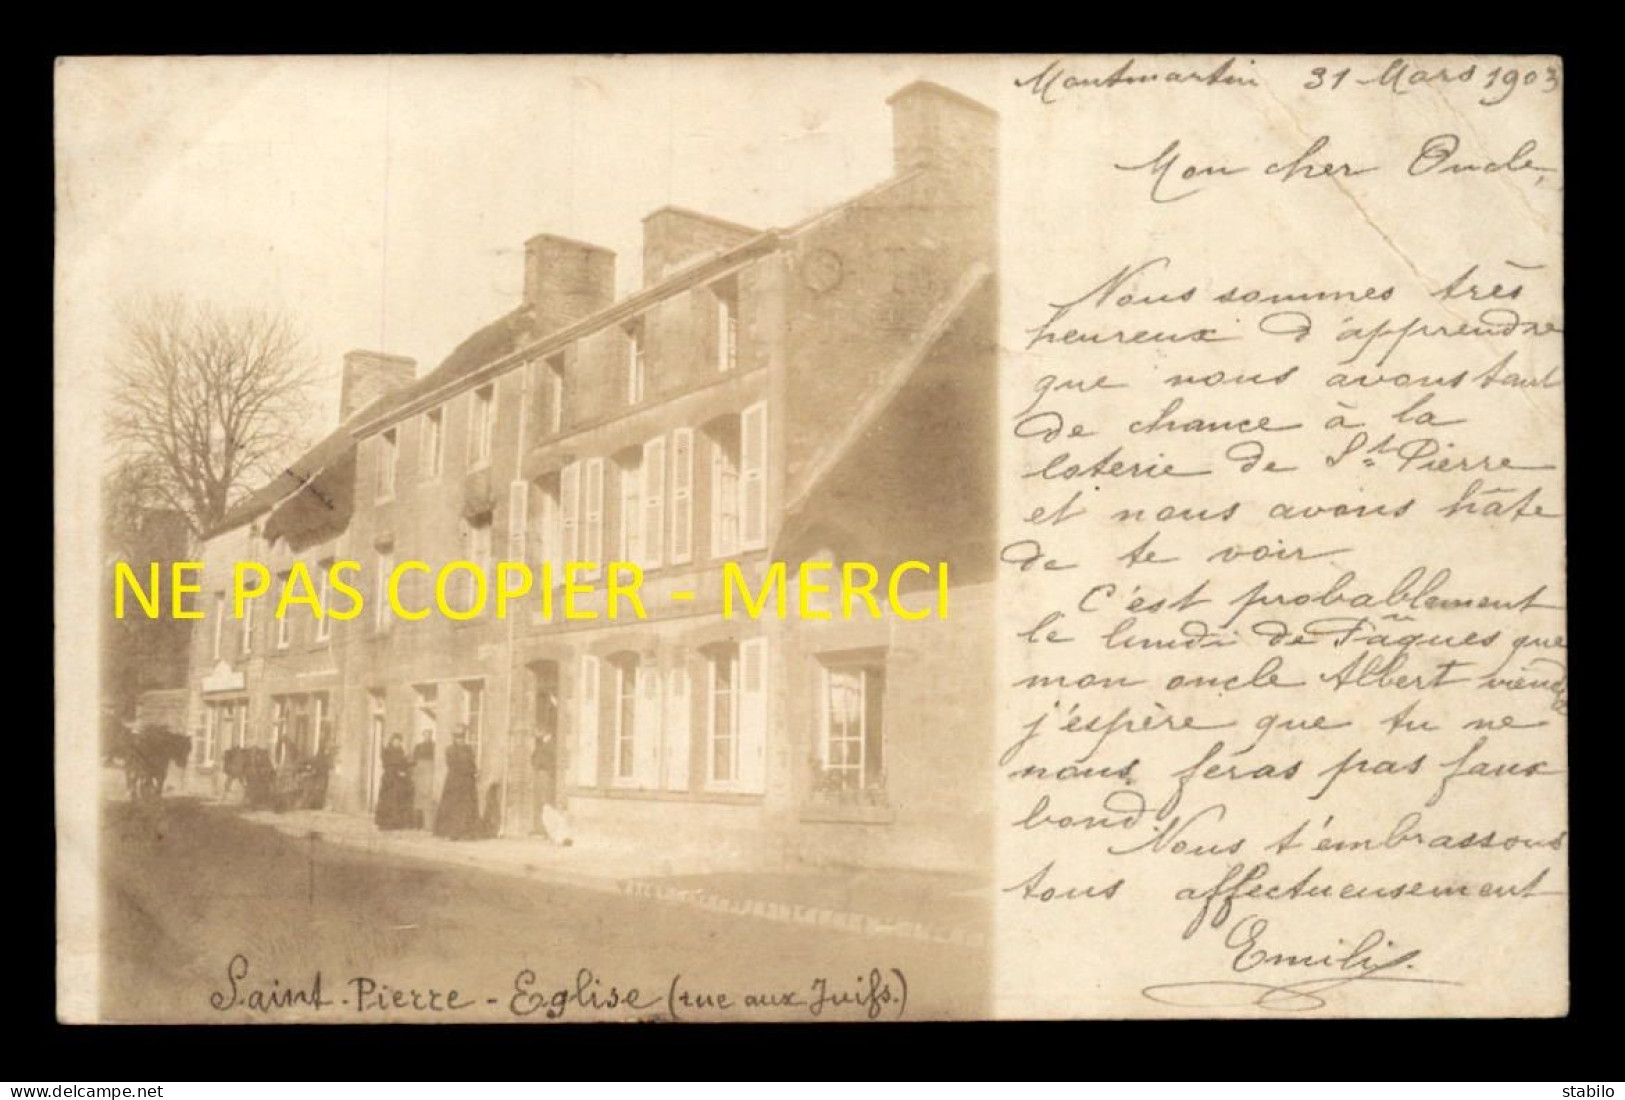 Montmartin 31 Mars 1903
Mon cher Oncle,
Nous sommes très
heureux d'apprendre
que nous avons tant
de chance à la
loterie de St Pierre
et nous avons hâte
de te voir
C'est probablement
le lundi de Pâques que
mon oncle Albert viendra
j'espère que tu ne
nous feras pas faux
bond.
Nous t'embrassons
tous affectueusement
Emili
NE PAS COPIER - MERCI
Saint-Pierre-Eglise (rue aux Juifs.)
delcampe.net
stabilo